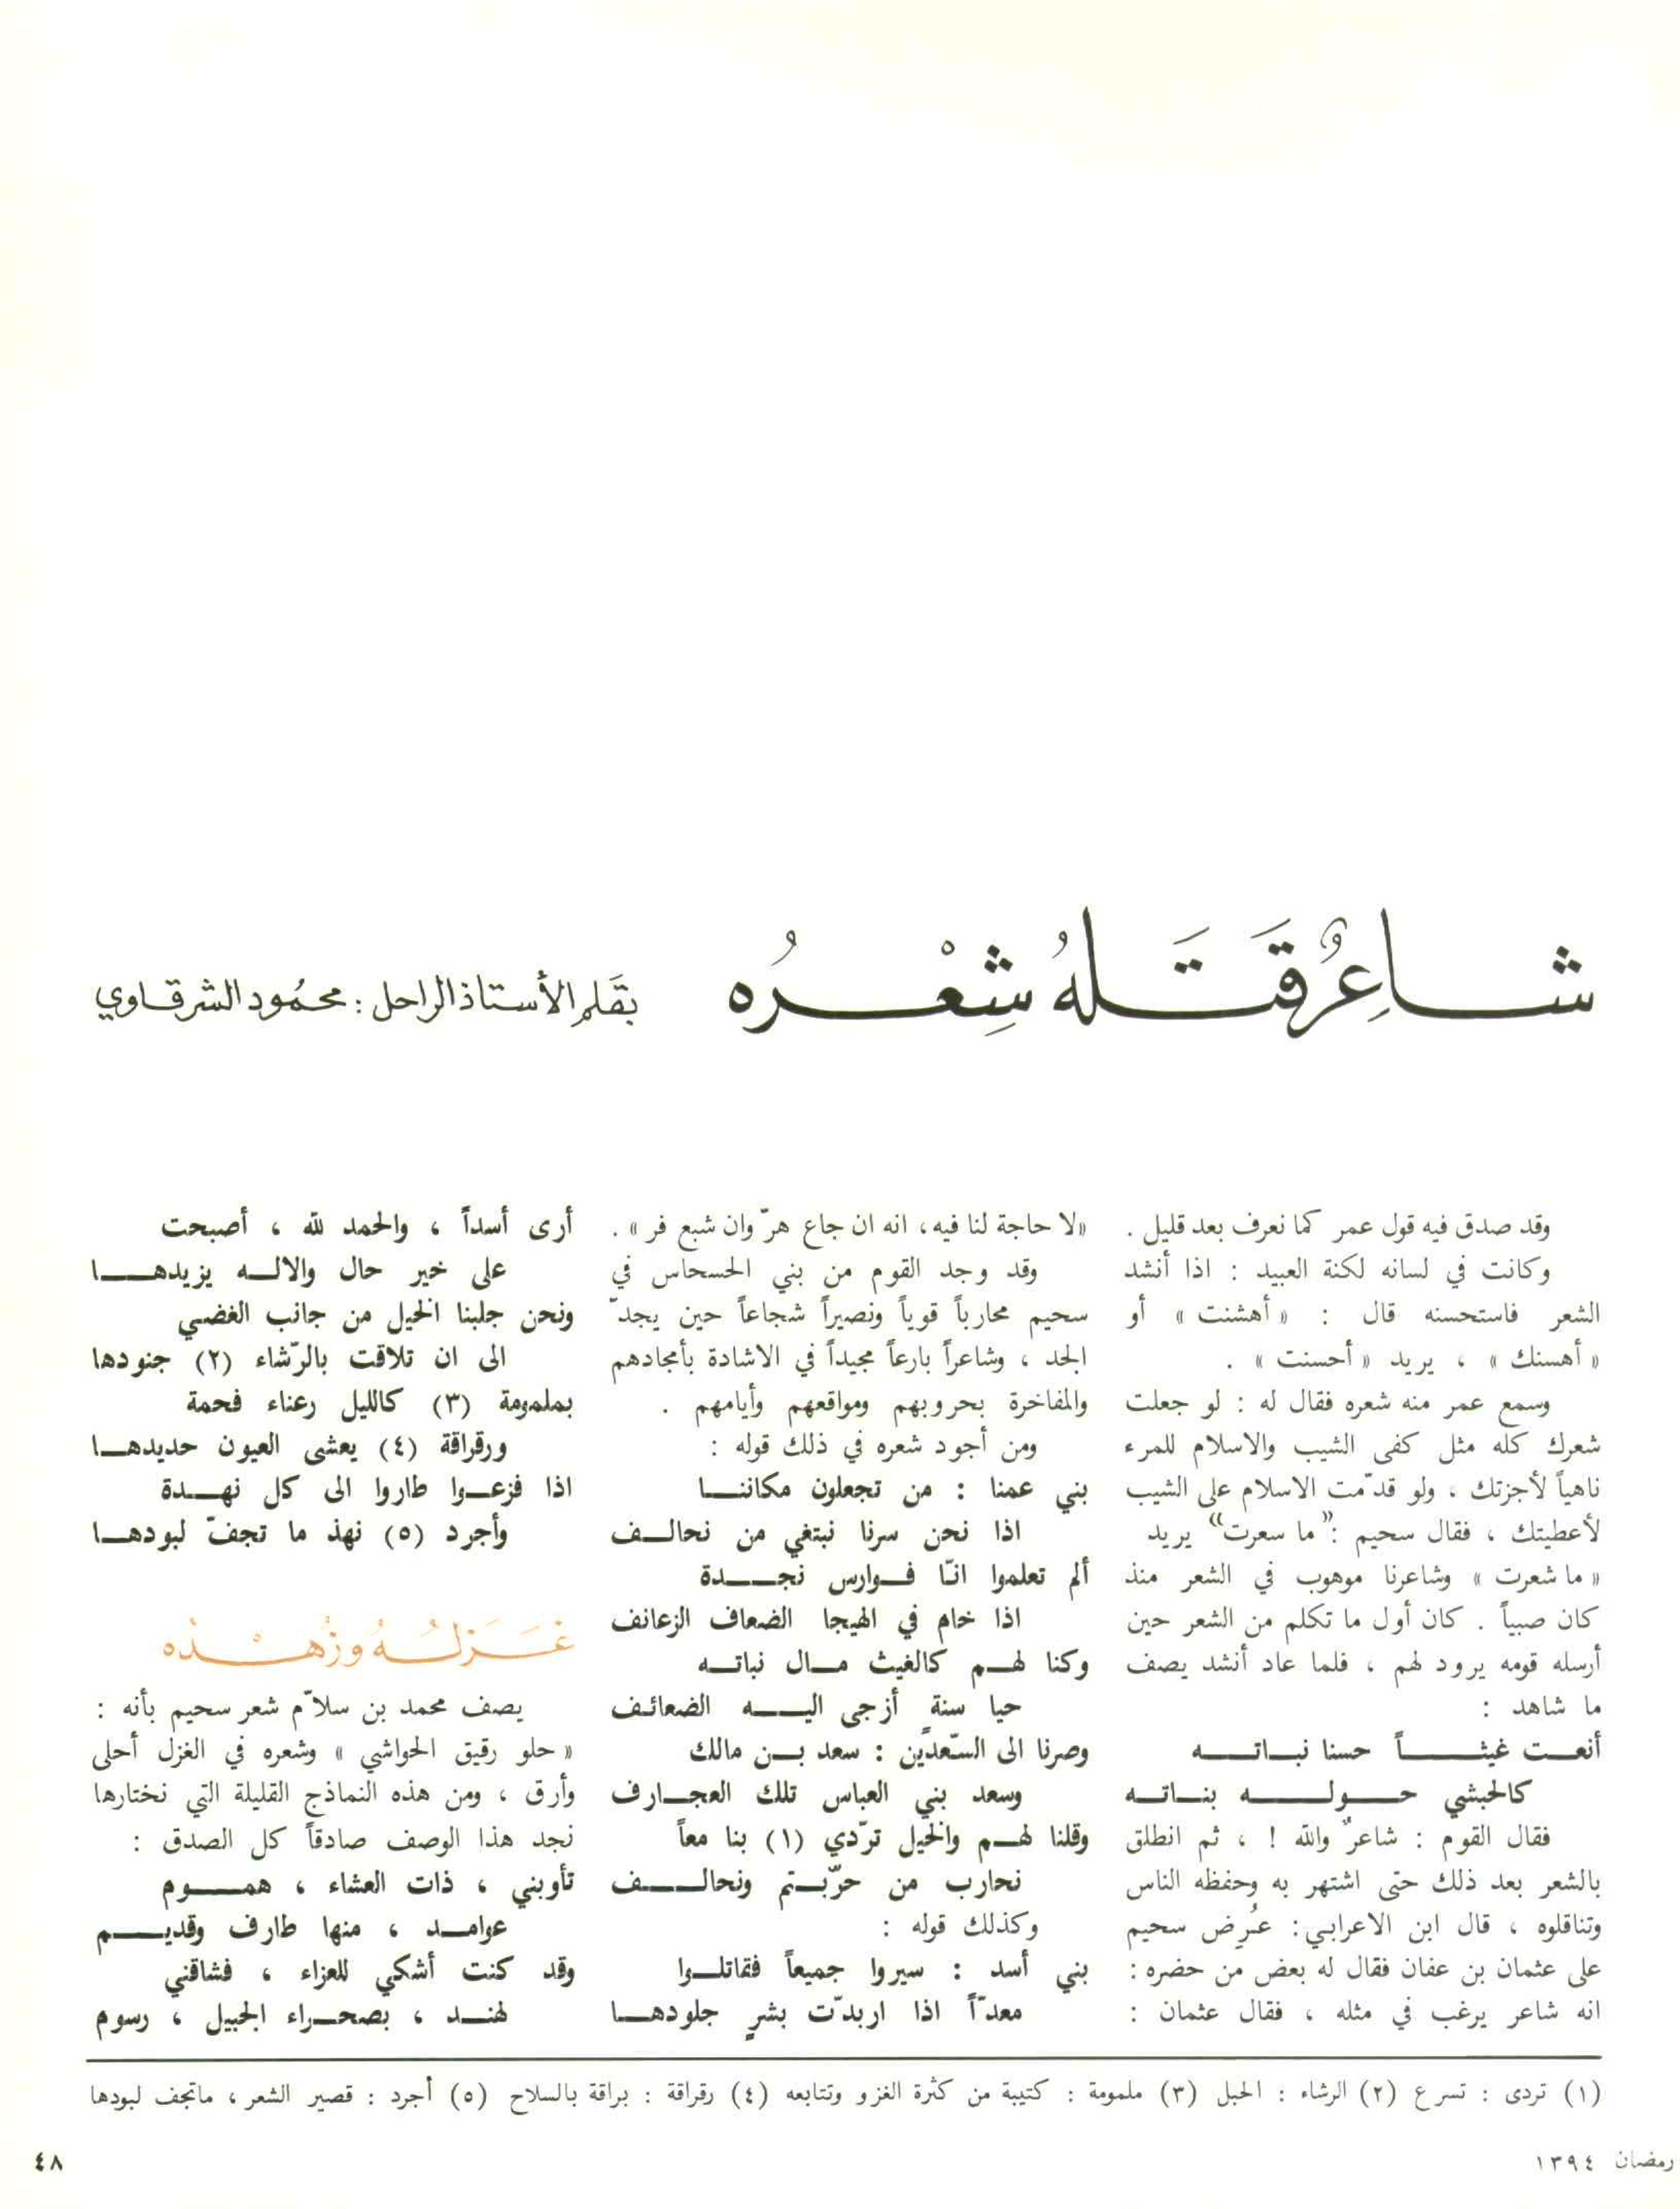 شاعر قتله شعره
بقلم الأستاذ الراحل : محمود الشرقاوي
وقد صدق فيه قول عمر كما نعرف بعد قليل .
وكانت في لسانه لكنة العبيد : اذا أنشد
الشعر فاستحسنه قال : « أهشنت » أو
« أهسنك » ، يريد « أحسنت » .
وسمع عمر منه شعره فقال له : لو جعلت
شعرك كله مثل كفى الشيب والاسلام للمرء
ناهياً لأجزتك ، ولو قدّمت الاسلام على الشيب
لأعطيتك ، فقال سحيم : "ما سعرت" يريد
« ما شعرت » وشاعرنا موهوب في الشعر منذ
كان صبياً . كان أول ما تكلم من الشعر حين
أرسله قومه يرود لهم ، فلما عاد أنشد يصف
ما شاهد :
أنعت غيثاً حسنا نباته
كالحبشي حوله بناته
فقال القوم : شاعرٌ والله ! ، ثم انطلق
بالشعر بعد ذلك حتى اشتهر به وحفظه الناس
وتناقلوه ، قال ابن الاعرابي : عُرِض سحيم
على عثمان بن عفان فقال له بعض من حضره :
انه شاعر يرغب في مثله ، فقال عثمان :
«لا حاجة لنا فيه ، انه ان جاع هرّ وان شبع فر » .
وقد وجد القوم من بني الحسحاس في
سحيم محارباً قوياً ونصيراً شجاعاً حين يجدّ
الجد ، وشاعراً بارعاً مجيداً في الاشادة بأمجادهم
والمفاخرة بحروبهم ومواقعهم وأيامهم .
ومن أجود شعره في ذلك قوله :
بني عمنا : من تجعلون مكاننا
اذا نحن سرنا نبتغي من نحالف
ألم تعلموا انّا فوارس نجدة
اذا خام في الهيجا الضعاف الزعانف
وكنا لهم كالغيث مال نباته
حيا سنةٍ أزجى اليه الضعائف
وصرنا الى السّعدَين : سعد بن مالك
وسعد بني العباس تلك العجارف
وقلنا لهم والخيل تردّي (١) بنا معاً
نحارب من حرّبتم ونحالف
وكذلك قوله :
بني أسد : سيروا جميعاً فقاتلوا
معدّاً اذا اربدّت بشرٍ جلودها
أرى أسداً ، والحمد لله ، أصبحت
على خير حال والاله يزيدها
ونحن جلبنا الخيل من جانب الغضي
الى ان تلاقت بالرّشاء (٢) جنودها
بملمومة (٣) كالليل رعناء فحمة
ورقراقة (٤) يعشى العيون حديدها
اذا فزعوا طاروا الى كل نهدة
وأجرد (٥) نهذ ما تجفّ لبودها
غزله وزهده
يصف محمد بن سلاّم شعر سحيم بأنه :
« حلو رقيق الحواشي » وشعره في الغزل أحلى
وأرق ، ومن هذه النماذج القليلة التي نختارها
نجد هذا الوصف صادقاً كل الصدق :
تأوبني ، ذات العشاء ، هموم
عوامد ، منها طارف وقديم
وقد كنت أشكي للعزاء ، فشاقني
لهند ، بصحراء الجبيل ، رسوم
(١) تردى : تسرع (٢) الرشاء : الحبل (٣) ملمومة : كتيبة من كثرة الغزو وتتابعه (٤) رقراقة : براقة بالسلاح (٥) أجرد : قصير الشعر ، ماتجف لبودها
رمضان ١٣٩٤
٤٨